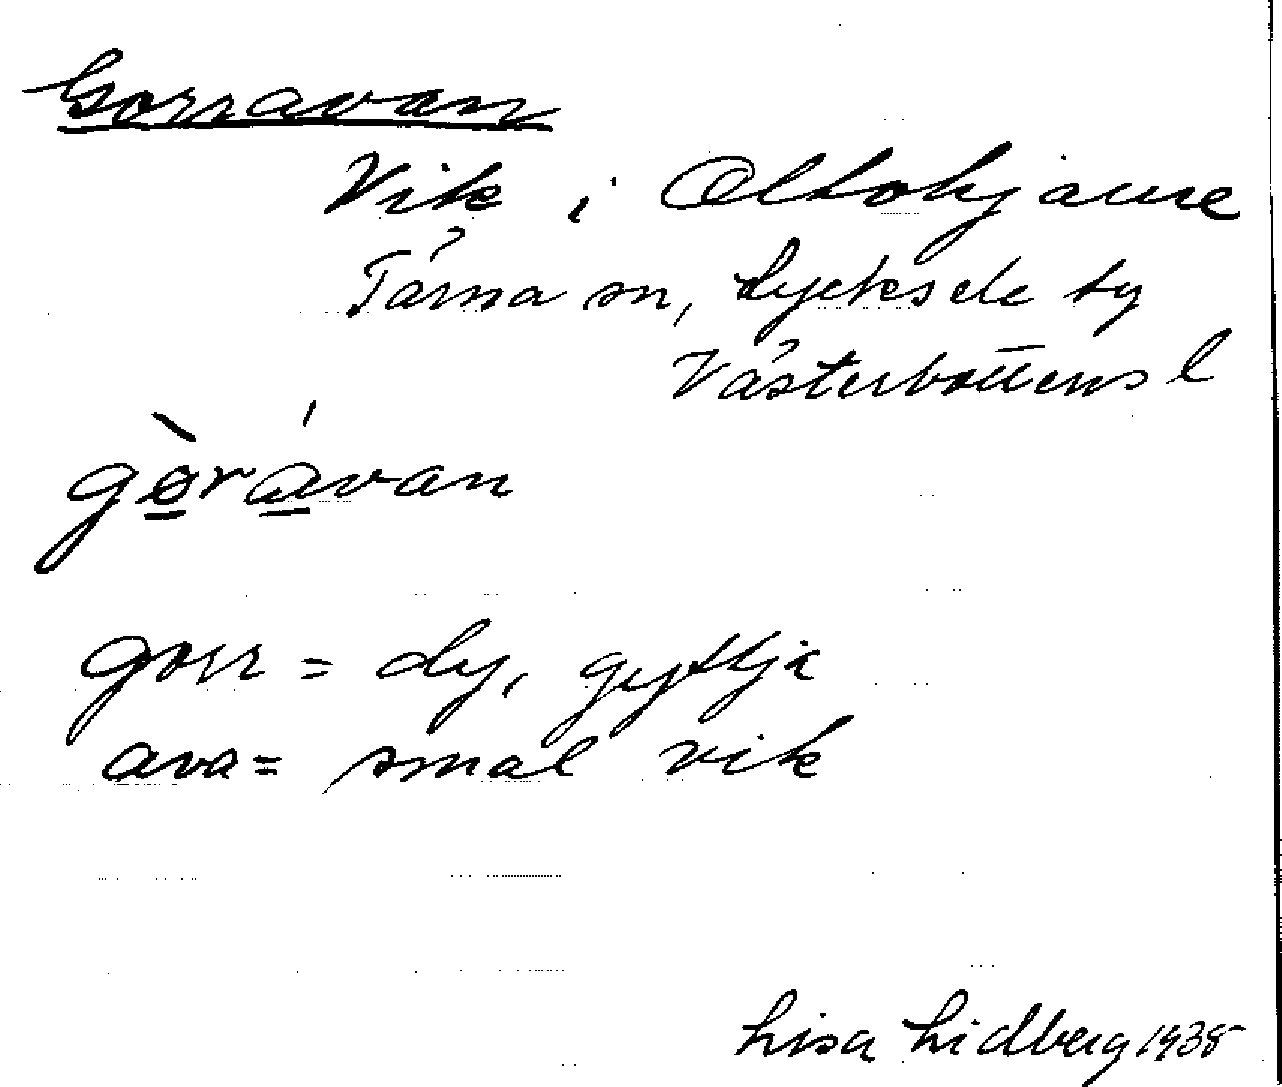 Gorravan
Vik i
Tärna sn, Lycksele ty
Västerbottens l
gòrávan
gorr = dy, gyttja
ava = smal vik
Lisa Lidberg 1938